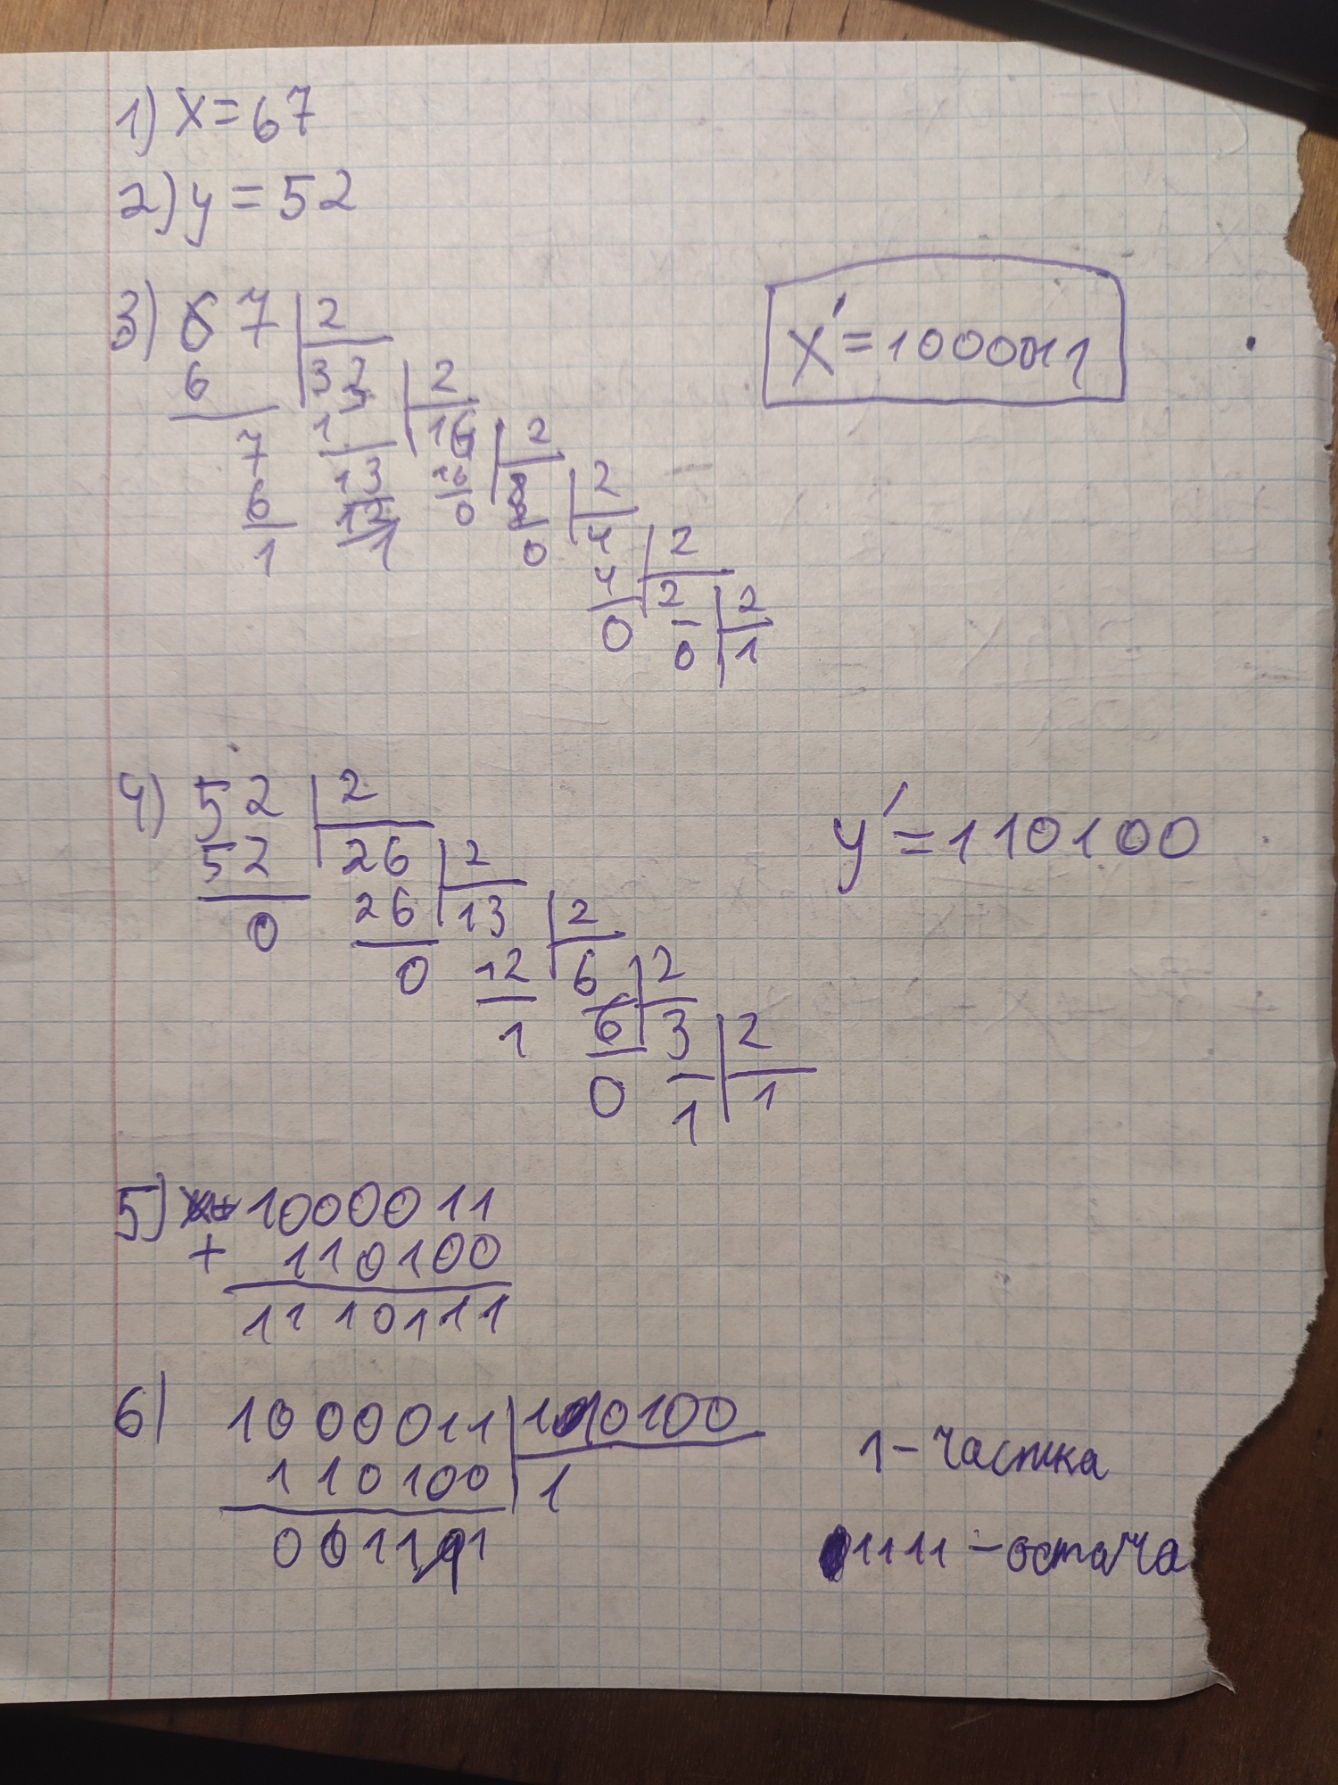 1) x=67
2) y=52
3) 67 | 2
6 33 | 2
7 1 16 | 2
6 13 16 8 | 2
1 12 0 8 4 | 2
1 0 4 2 | 2
0 0 1
x'=1000011
4) 52 | 2
52 26 | 2
0 26 13 | 2
0 12 6 | 2
1 6 3 | 2
0 1 1
y'=110100
5) 1000011
+ 110100
1110111
6) 1000011 | 110100
110100 1
001111
1-частка
1111-остача